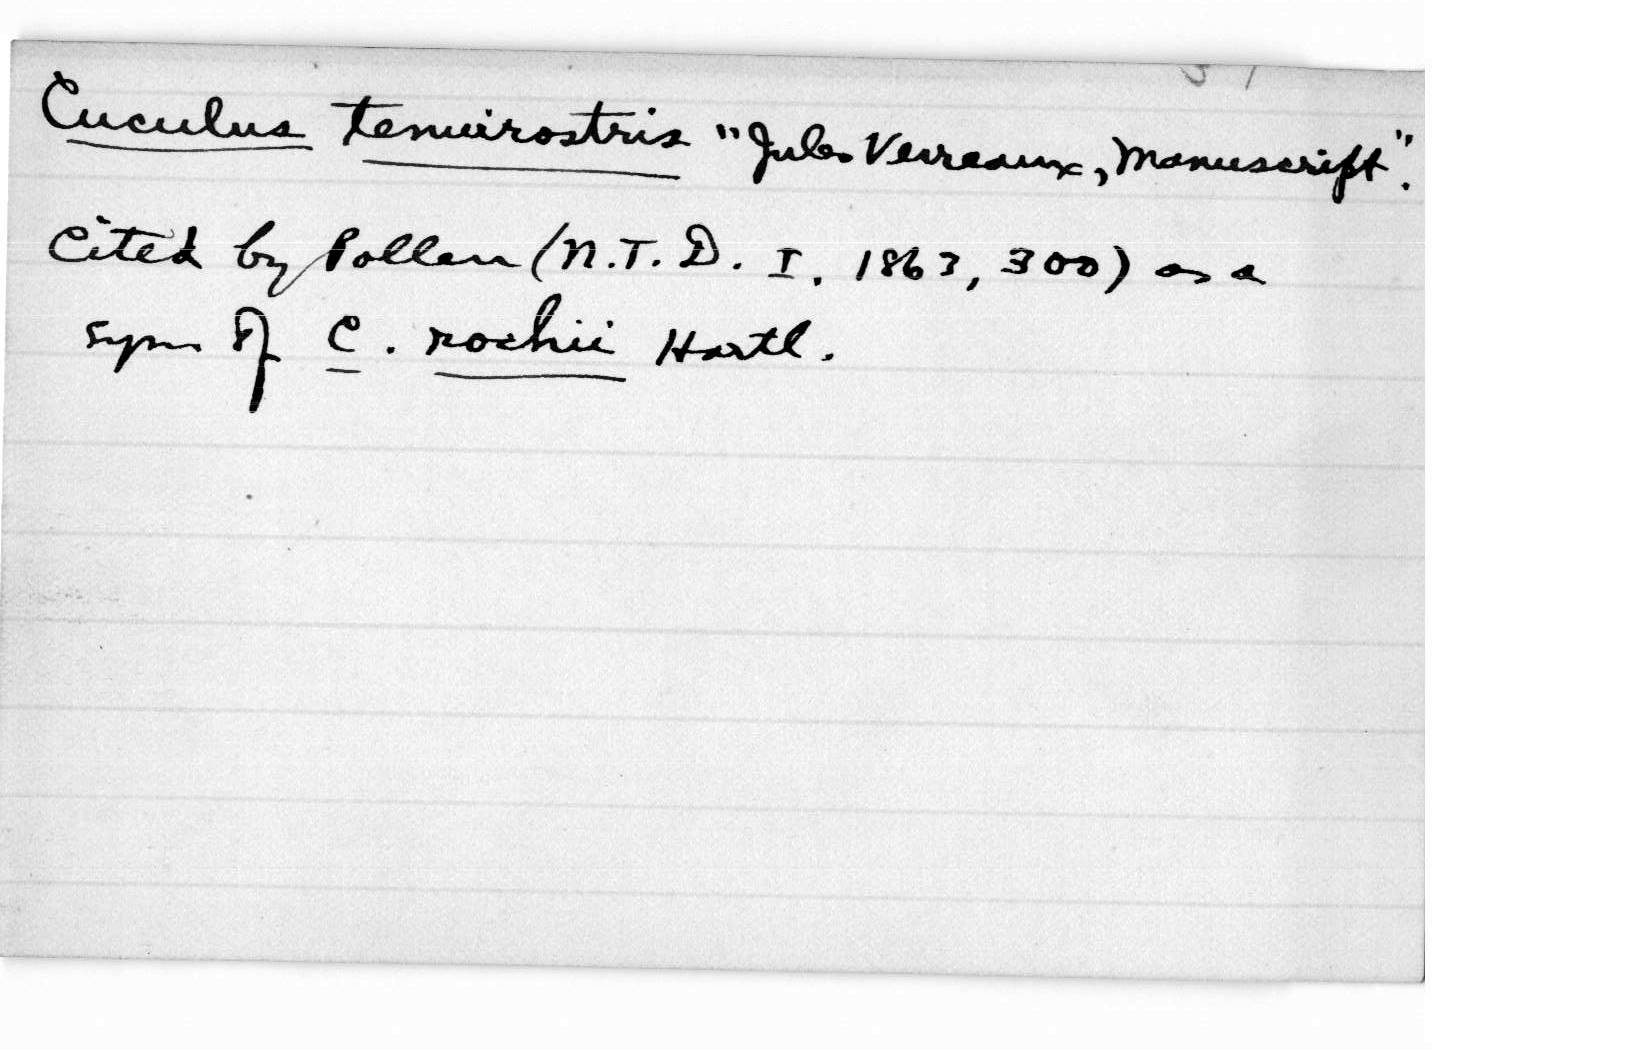 Cuculus tenuirostris "Jules Verreaux, Manuscript".
Cited by Pollen (N.T.D. I. 1863, 300) as a
syn. of C. rochii Hartl.